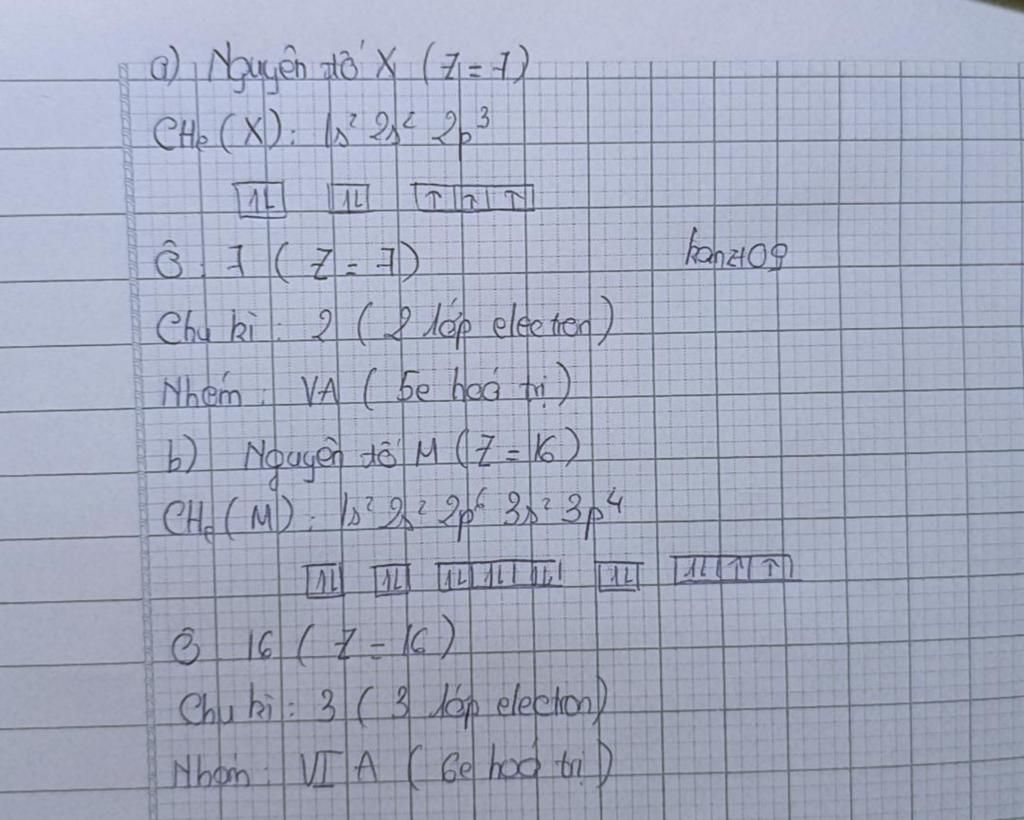 a) Nguyên tố X (Z = 7)
CHe (X): 1s² 2s² 2p³
↑↓ ↑↓ ↑ ↑ ↑
Ô 7 (Z = 7)
kanzt09
Chu kì: 2 (2 lớp electron)
Nhóm: VA (5e hoá trị)
b) Nguyên tố M (Z = 16)
CHe (M): 1s² 2s² 2p⁶ 3s² 3p⁴
↑↓ ↑↓ ↑↓ ↑↓ ↑↓ ↑↓ ↑↓ ↑ ↑
Ô 16 (Z = 16)
Chu kì: 3 (3 lớp electron)
Nhóm: VI A (6e hoá trị)